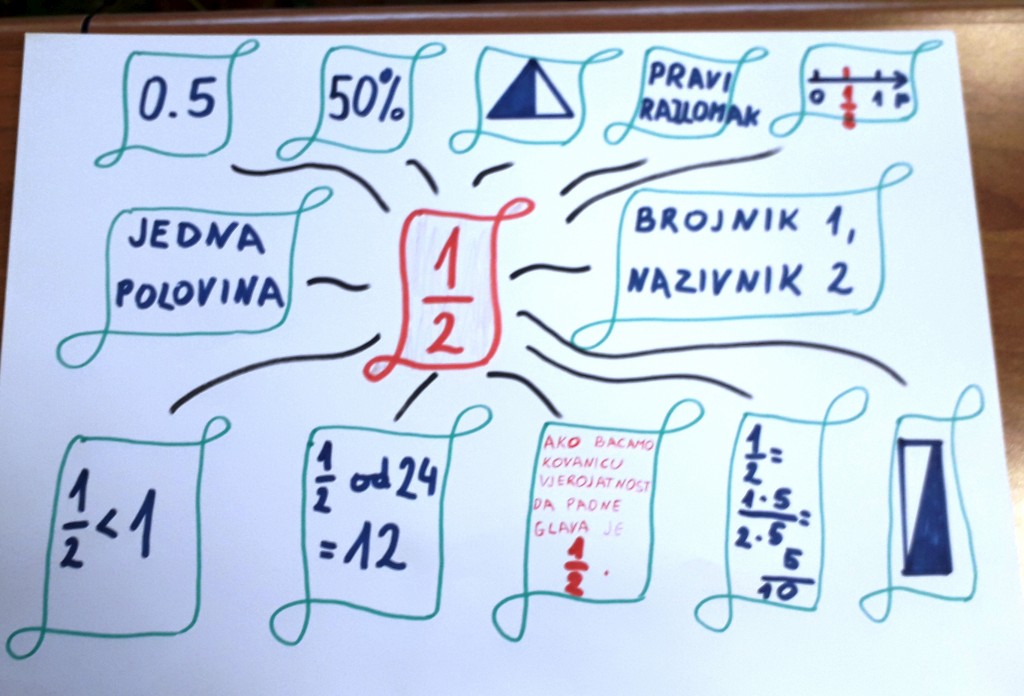 0.5
50%
PRAVI
RAZLOMAK
0 1/2 1 P
JEDNA
POLOVINA
1/2
BROJNIK 1,
NAZIVNIK 2
1/2 < 1
1/2 od 24
= 12
AKO BACAMO
KOVANICU
VJEROJATNOST
DA PADNE
GLAVA JE
1/2.
1/2 =
1·5/2·5 =
5/10